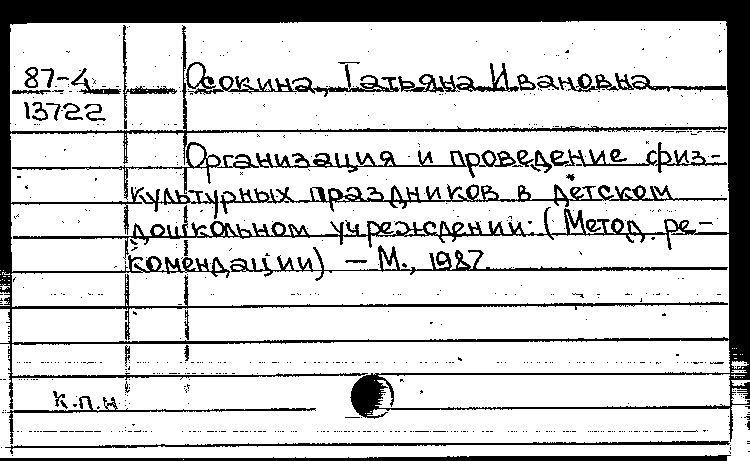 87-4 Осокина, Татьяна Ивановна
13722
Организация и проведение физ-
культурных праздников в детском
дошкольном учреждении: (Метод. ре-
комендации). — М., 1987.
к.п.н